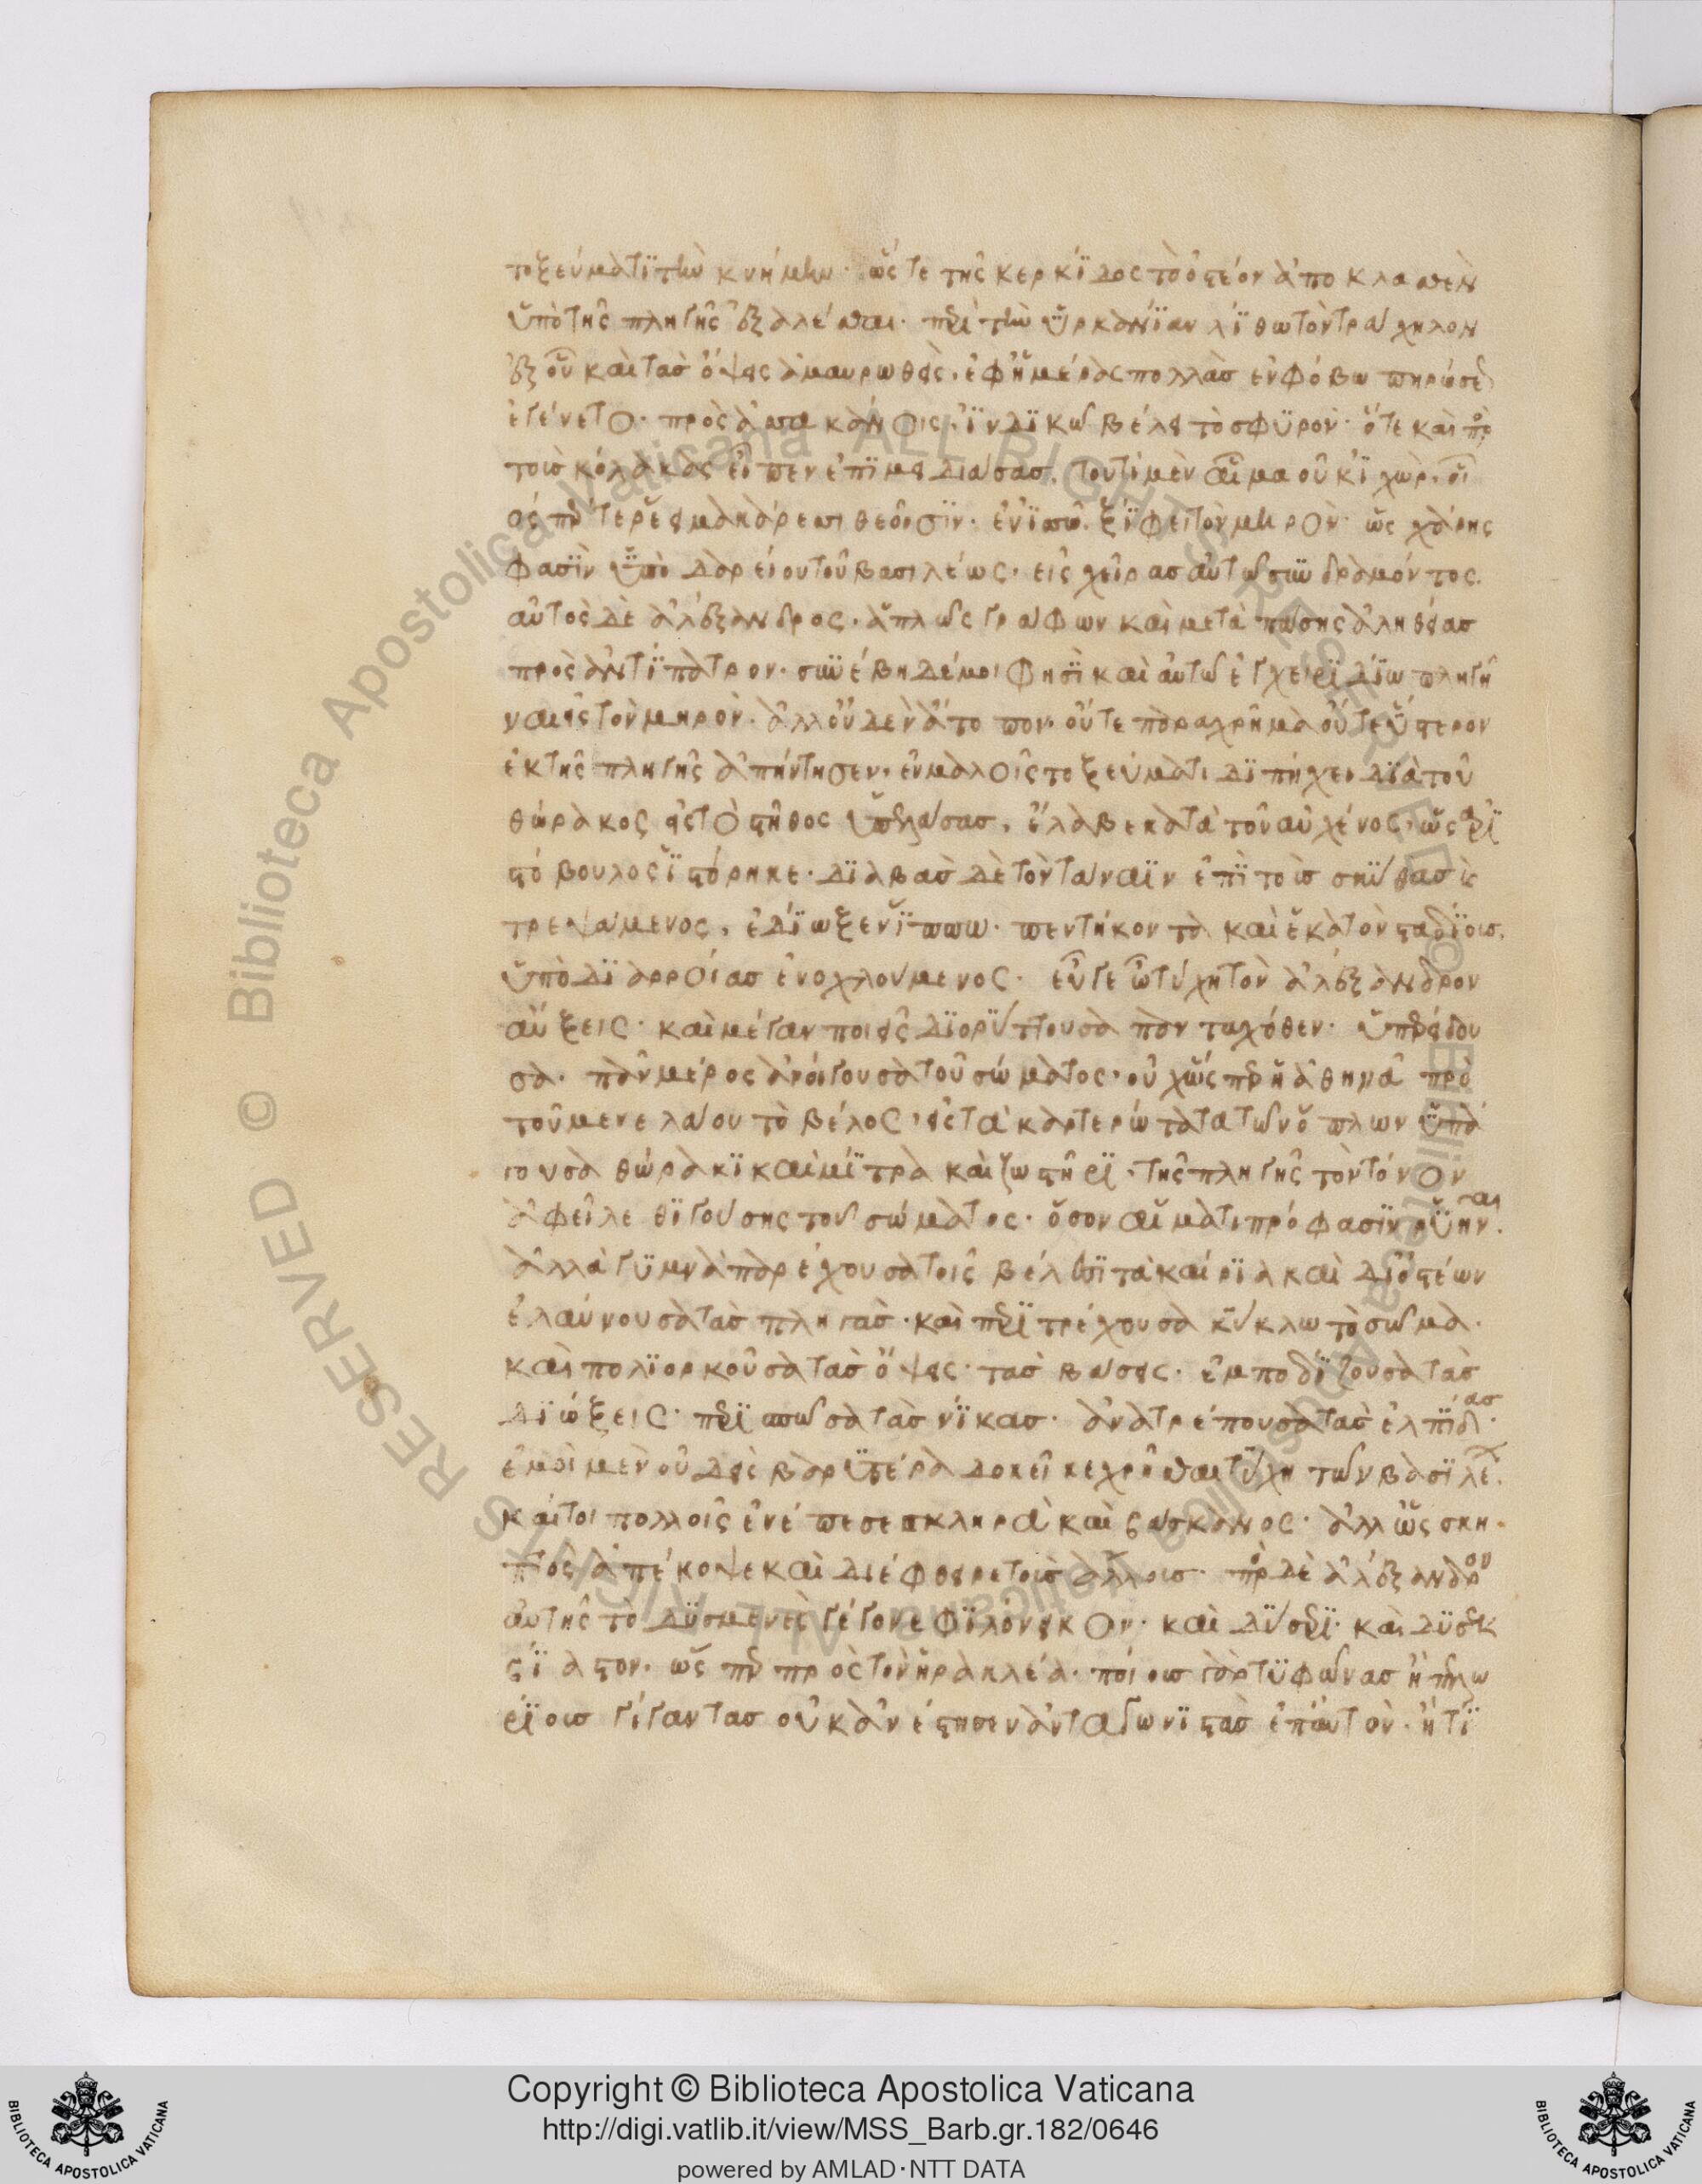 τοξεύματϊ τὴν κνήμην· ὥστε τῆς κερκΐδος τὸ ὀστέον ἀποκλασθὲν
ὑπὸ τῆς πληγῆς ἐξαλέσθαι· περὶ τὴν ὑρκανΐαν λΐθω τὸν τράχηλον
ἐξ οὗ καὶ τὰσ ὄψεις ἀμαυρωθεὶς, ἐφ' ἡμέρας πολλὰσ ἐν φόβω πηρώσε
ἐγένετο· πρὸς ἀσσακάνοις, ϊνδϊκῶ βέλει τὸ σφϋρὸν· ὅτε καὶ πρὸ
τοὺσ κόλακας εἶπεν ἐπϊμειδιάσασ, τουτὶ μὲν αἷμα οὐκ ϊχὼρ, οἷ
ός πέρ τε ῥέει μακάρεσσι θεοῖσϊν· ἐν ϊσσῶ ξΐφει τὸν μηρὸν· ὡς χάρης
φασῒν ὑπὸ δαρείου τοῦ βασιλέως, εἰς χεῖρασ αὐτῶ συνδραμόντος.
αὐτὸς δὲ ἀλέξανδρος, ἁπλῶς γράφων καὶ μετὰ πάσης ἀληθείασ
πρὸς ἀντΐπατρον· συνέβη δέ μοι φησῒ καὶ αὐτῶ ἐγχειρϊδΐω πληγῆ
ναι εἰς τὸν μηρὸν· ἀλλ' οὐδὲν ἄτοπον οὔτε παραχρῆμα οὔτε ὕστερον
ἐκ τῆς πληγῆς ἀπήντησεν, ἐν μαλοῖς τοξεύματι δϊπήχει δϊὰ τοῦ
θώρακος εἰς τὸ στῆθος ὑπελάσασ, ἔλαβε κατὰ τοῦ αὐχένος, ὡς ἀρϊ
στόβουλος ϊστόρηκε· δϊαβὰσ δὲ τὸν τάναϊν ἐπῒ τοὺσ σκύθασ
τρεψάμενος, ἐδΐωξεν ΐππω· πεντήκοντα καὶ ἑκατὸν σταδΐουσ,
ὑπὸ δϊαρροίασ ἐνοχλούμενος· εὖγε ὦ τύχη τὸν ἀλέξανδρον
αὔξεις· καὶ μέγαν ποιεῖς δϊορϋττουσα πανταχόθεν· ὑπερείδου
σα· πᾶν μέρος ἀνοίγουσα τοῦ σώματος· οὐχ ὥσπερ ἡ ἀθηνᾶ πρὸ
τοῦ μενελάου τὸ βέλος, εἰς τὰ καρτερώτατα τῶν ὅπλων ὑπά
γουσα θώρακϊ καὶ μΐτρα καὶ ζωστῆρϊ· τῆς πληγῆς τὸν τόνον
ἀφεῖλε θϊγούσης τοῦ σώματος· ὅσον αἵματι πρόφασϊν ρϋῆναι.
ἀλλὰ γϋμνὰ παρέχουσα τοῖς βέλεσϊ τὰ καίρϊα καὶ δϊ' ὀστέων
ἐλαύνουσα τὰσ πληγὰσ· καὶ περϊτρέχουσα κύκλω τὸ σῶμα·
καὶ πολϊορκοῦσα τὰσ ὄψεις· τὰσ βάσεις· ἐμποδΐζουσα τὰσ
δϊώξεις· περϊσπῶσα τὰσ νΐκασ· ἀνατρέπουσα τὰσ ἐλπΐδασ·
ἐμοὶ μὲν οὐδεὶς βαρϋτέρα δοκεῖ κεχρῆσθαι τύχη τῶν βασϊλέ
καίτοι πολλοῖς ἐνέπεσε σκληρὰ καὶ βάσκανος· ἀλλ' ὡς σκη
πτὸς ἀπέκοψε καὶ διέφθειρε τοὺσ ἄλλουσ· πρὸ δὲ ἀλέξανδρον
αὐτῆς τὸ δϋσμενὲς γέγονε φϊλόνεικον· καὶ δύσερϊ· καὶ δϋσεκ
βΐαστον· ὡς περ πρὸς τὸν ἡρακλέα· ποίουσ γὰρ τϋφῶνασ ἢ πελω
ρΐουσ γίγαντασ οὐκ ἀνέστησεν ἀνταγωνϊστὰσ ἐπ' αὐτὸν· ἢ τΐ
© Biblioteca Apostolica Vaticana ALL RIGHTS RESERVED
Copyright © Biblioteca Apostolica Vaticana
http://digi.vatlib.it/view/MSS_Barb.gr.182/0646
powered by AMLAD·NTT DATA
BIBLIOTECA APOSTOLICA VATICANA
BIBLIOTECA APOSTOLICA VATICANA